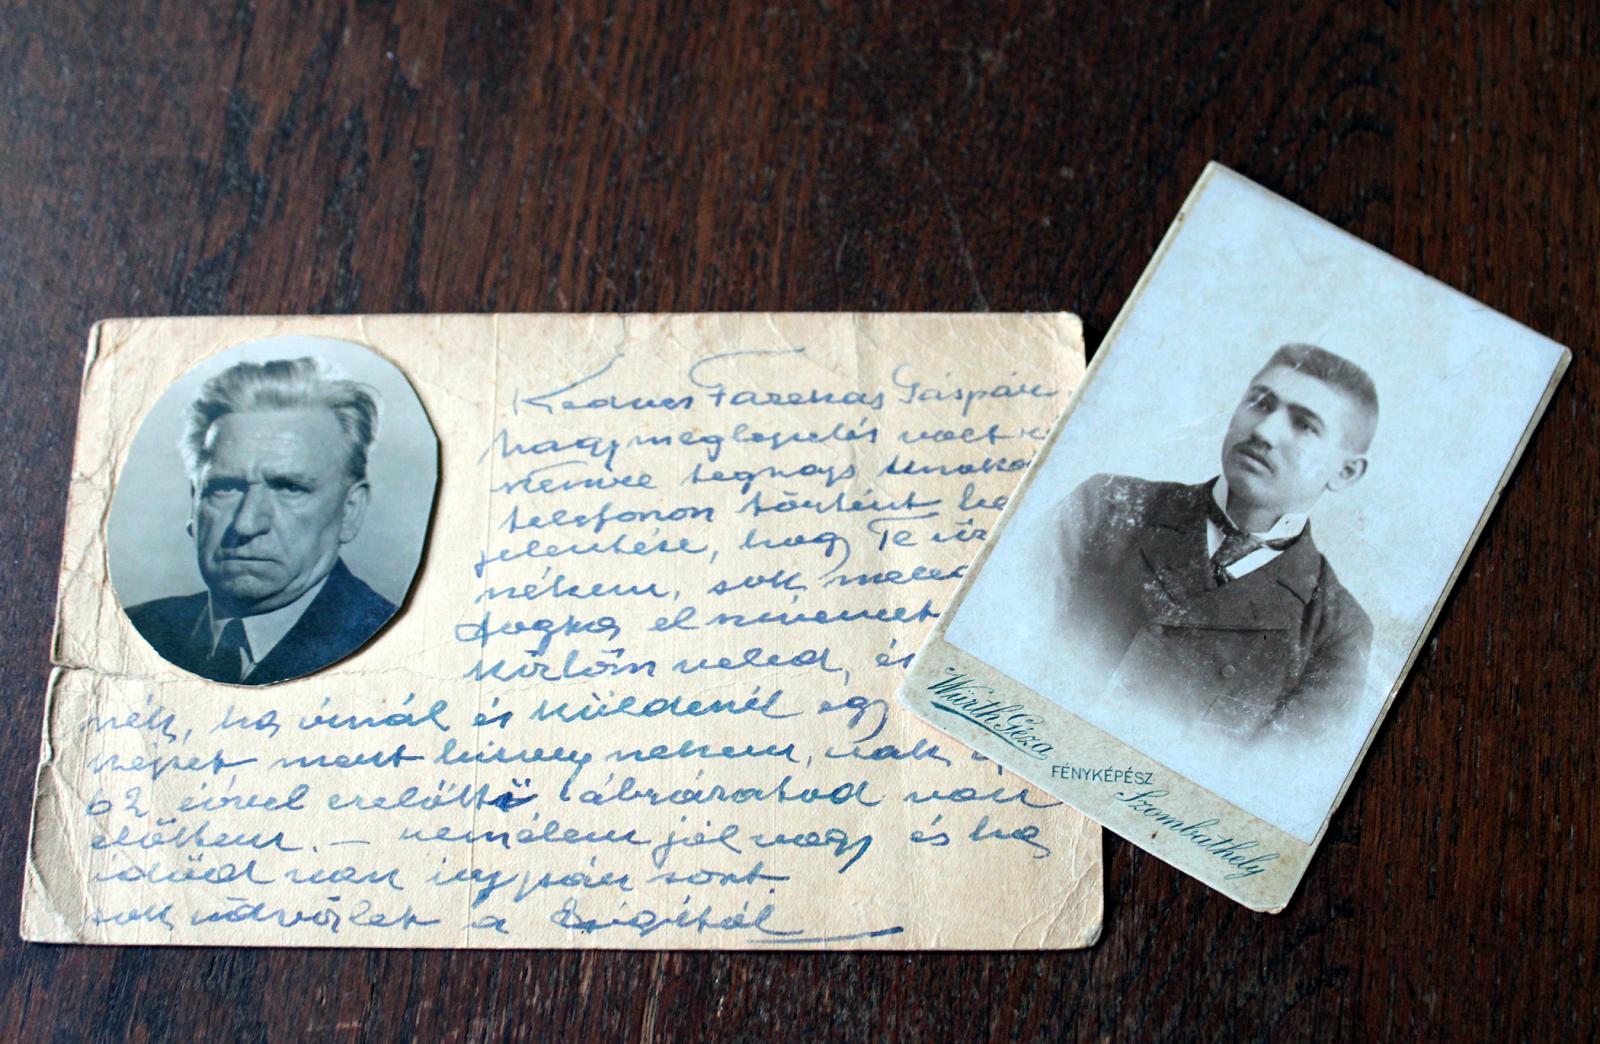 Kedves Farkas Gáspár
nagy meglepetés volt
tegnap unoka
telefonon történt
jelentése, hogy Te
nékem, sok
fogta el szívemet
közlöm veled, és
nék, ha írnál és küldenél egy
képet mert bizony nekem, csak
62 évvel ezelőtti ábrázatod van
előttem. — remélem jól vagy és ha
időd van írj pár sort.
sok üdvözlet a
Würth Géza
FÉNYKÉPÉSZ
Szombathely